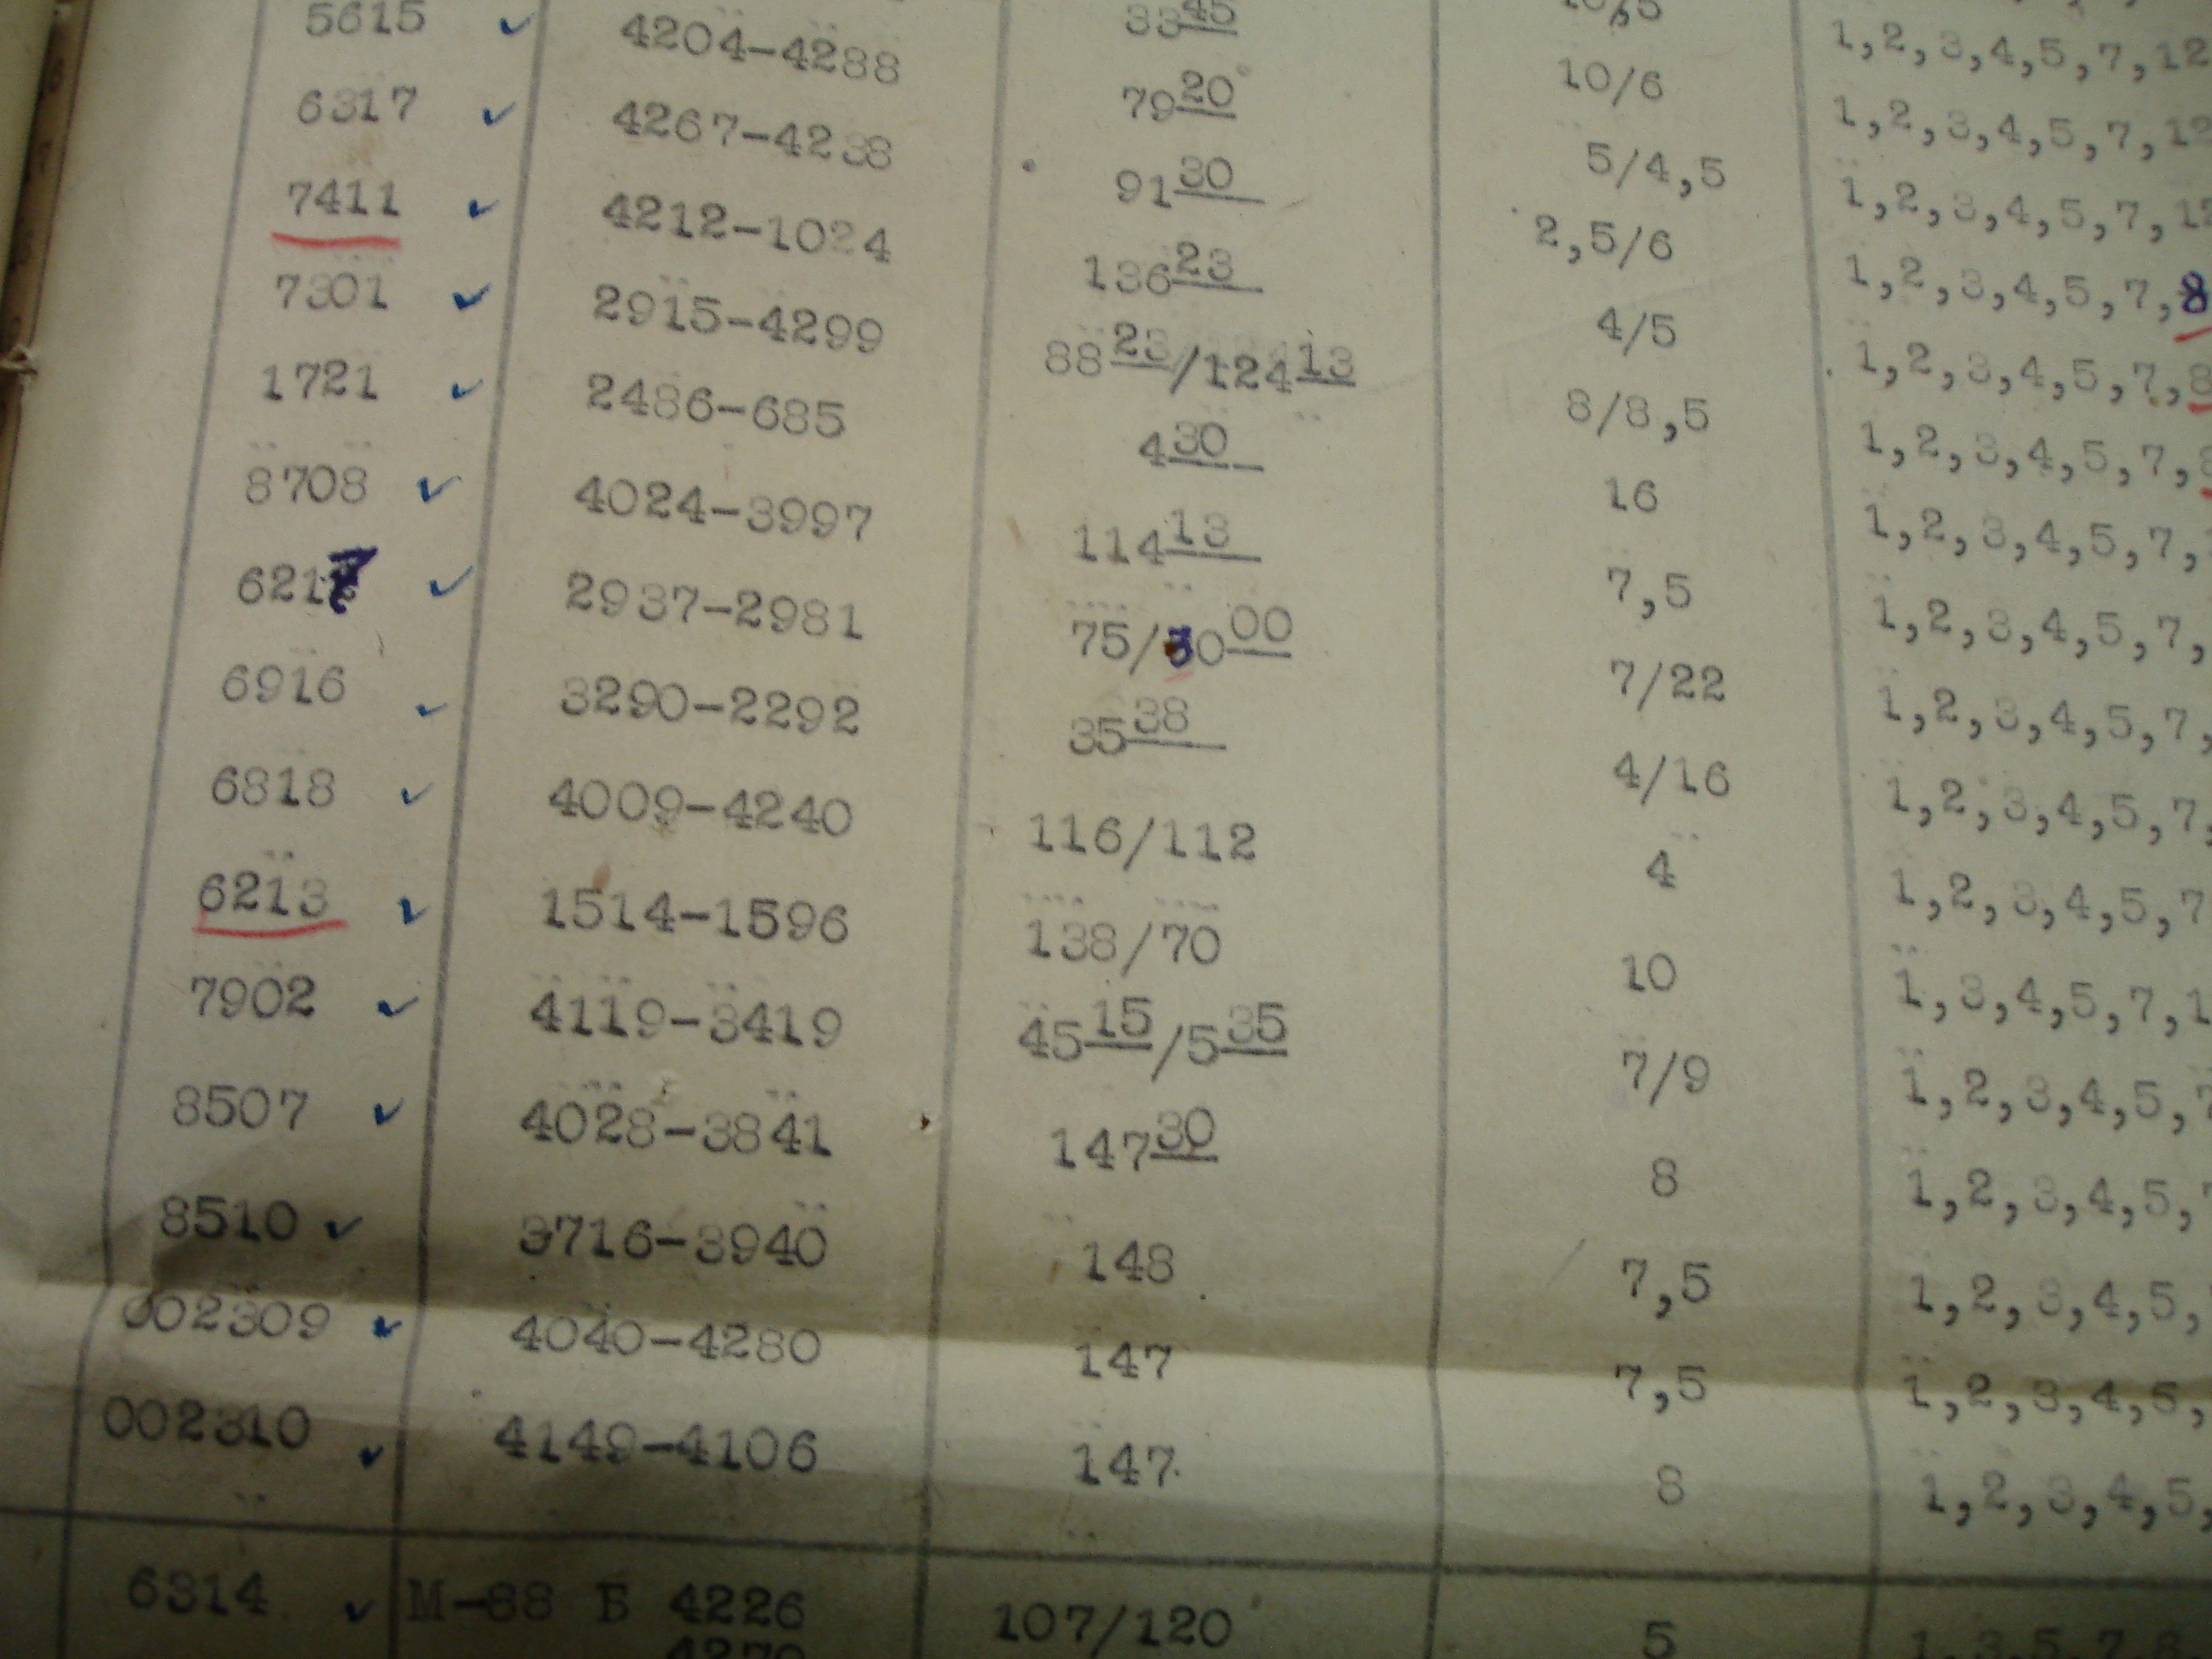 5615 4204-4288 33 45
6317 4267-4238 79 20 10/6 1,2,3,4,5,7,12
7411 4212-1024 91 30 5/4,5 1,2,3,4,5,7,12
7301 2915-4299 136 23 2,5/6 1,2,3,4,5,7,
1721 2486-685 88 23/124 13 4/5 1,2,3,4,5,7,8
8708 4024-3997 4 30 8/8,5 1,2,3,4,5,7,8
6217 2937-2981 114 13 16 1,2,3,4,5,7,
6916 3290-2292 75/30 00 7,5 1,2,3,4,5,7,
6818 4009-4240 35 38 7/22 1,2,3,4,5,7,
6213 1514-1596 116/112 4/16 1,2,3,4,5,7,
7902 4119-3419 138/70 4 1,2,3,4,5,7,
8507 4028-3841 45 15/5 35 10 1,2,3,4,5,7
8510 3716-3940 147 30 7/9 1,3,4,5,7,1
002309 4040-4280 148 8 1,2,3,4,5,7
002310 4149-4106 147 7,5 1,2,3,4,5,
147 7,5 1,2,3,4,5,
8 1,2,3,4,5,
1,2,3,4,5,
6314 М-88 Б 4226 107/120 5 1,3,5,7,8
4270